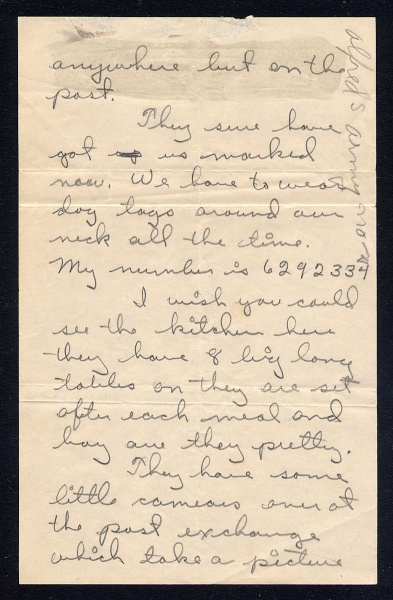 anywhere but on the
post.
They sure have
got us marked
now. We have to wear
dog tags around our
neck all the time.
My number is 6292334
I wish you could
see the kitchen here
they have 8 big long
tables on they are set
after each meal and
boy are they pretty.
They have some
little camears over at
the post exchange
which take a picture
alfred's army no